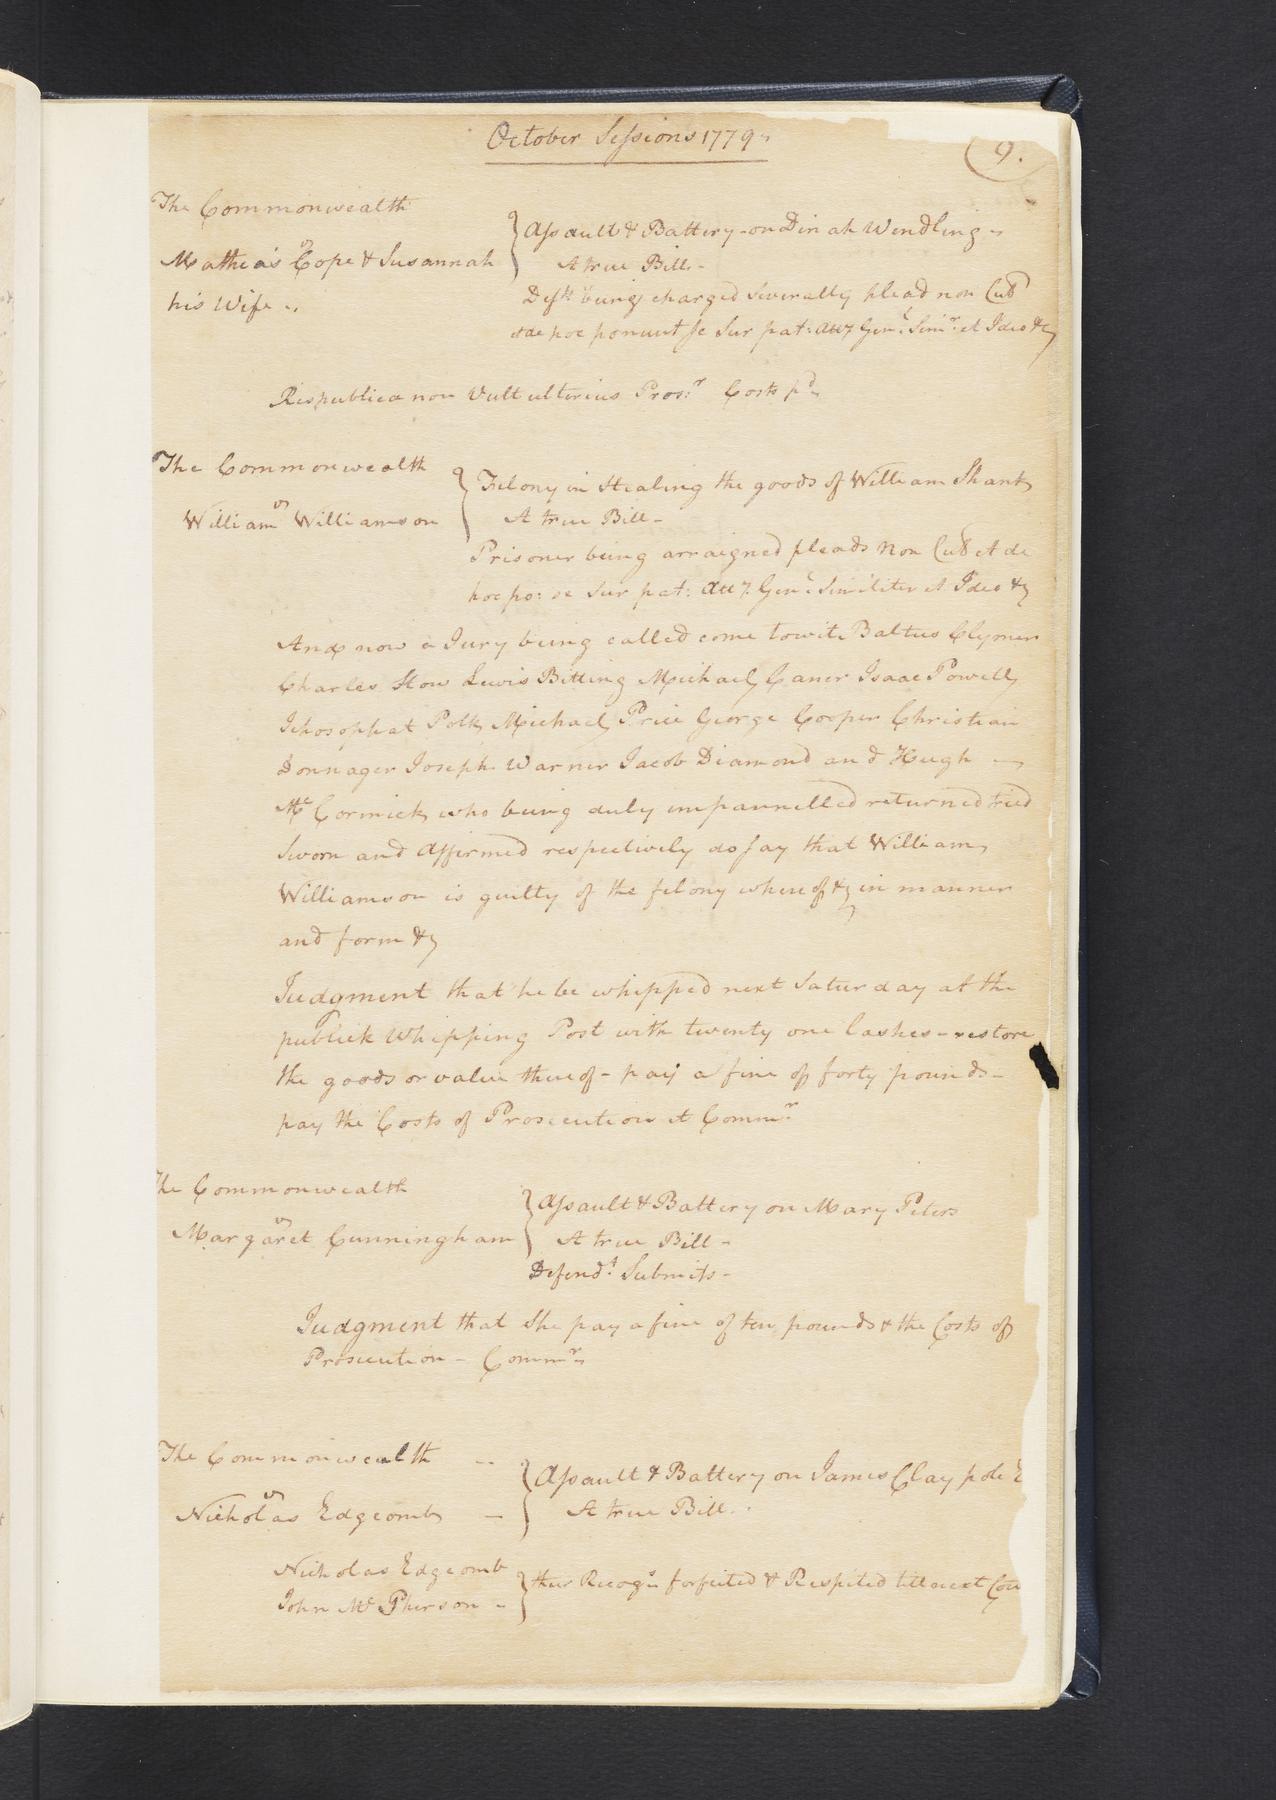 October Sessions 1779
9.
The Commonwealth
vs
Mathias Cope & Susannah
his Wife
Assault & Battery on Dinah Wendling
A true Bill -
Defts being charged severally plead non Cul
et de hoc ponunt se Sur pat: Atty Genl. Simr. et Ideo &c
Respublica non Vult ulterius Prosr. Costs pd
The Commonwealth
vs
William Williamson
Felony in Stealing the goods of William Shank
A true Bill -
Prisoner being arraigned pleads Non Cul et de
hoc po: se Sur pat: Atty. Genl. Similiter et Ideo &c
And now a Jury being called come towit Baltus Clymer
Charles Stow Lewis Bitting Michael Caner Isaac Powell
Jehosophat Polk Michael Price George Cooper Christian
Donnager Joseph Warner Jacob Diamond and Hugh
Mc Cormick who being duly impannelled returned tried
Sworn and Affirmed respectively do say that William
Williamson is guilty of the felony whereof &c in manner
and form &c
Judgment that he be whipped next Saturday at the
publick Whipping Post with twenty one lashes - restore
the goods or value thereof - pay a fine of forty pounds -
pay the Costs of Prosecution et Commr
The Commonwealth
vs
Margaret Cunningham
Assault & Battery on Mary Peters
A true Bill -
Defendt. Submits -
Judgment that She pay a fine of ten pounds & the Costs of
Prosecution - Commr
The Commonwealth
vs
Nicholas Edgcomb
Assault & Battery on James Claypole E
A true Bill.
Nicholas Edgcomb
John Mc Pherson -
their Recogs forfeited & Respited till next Cou